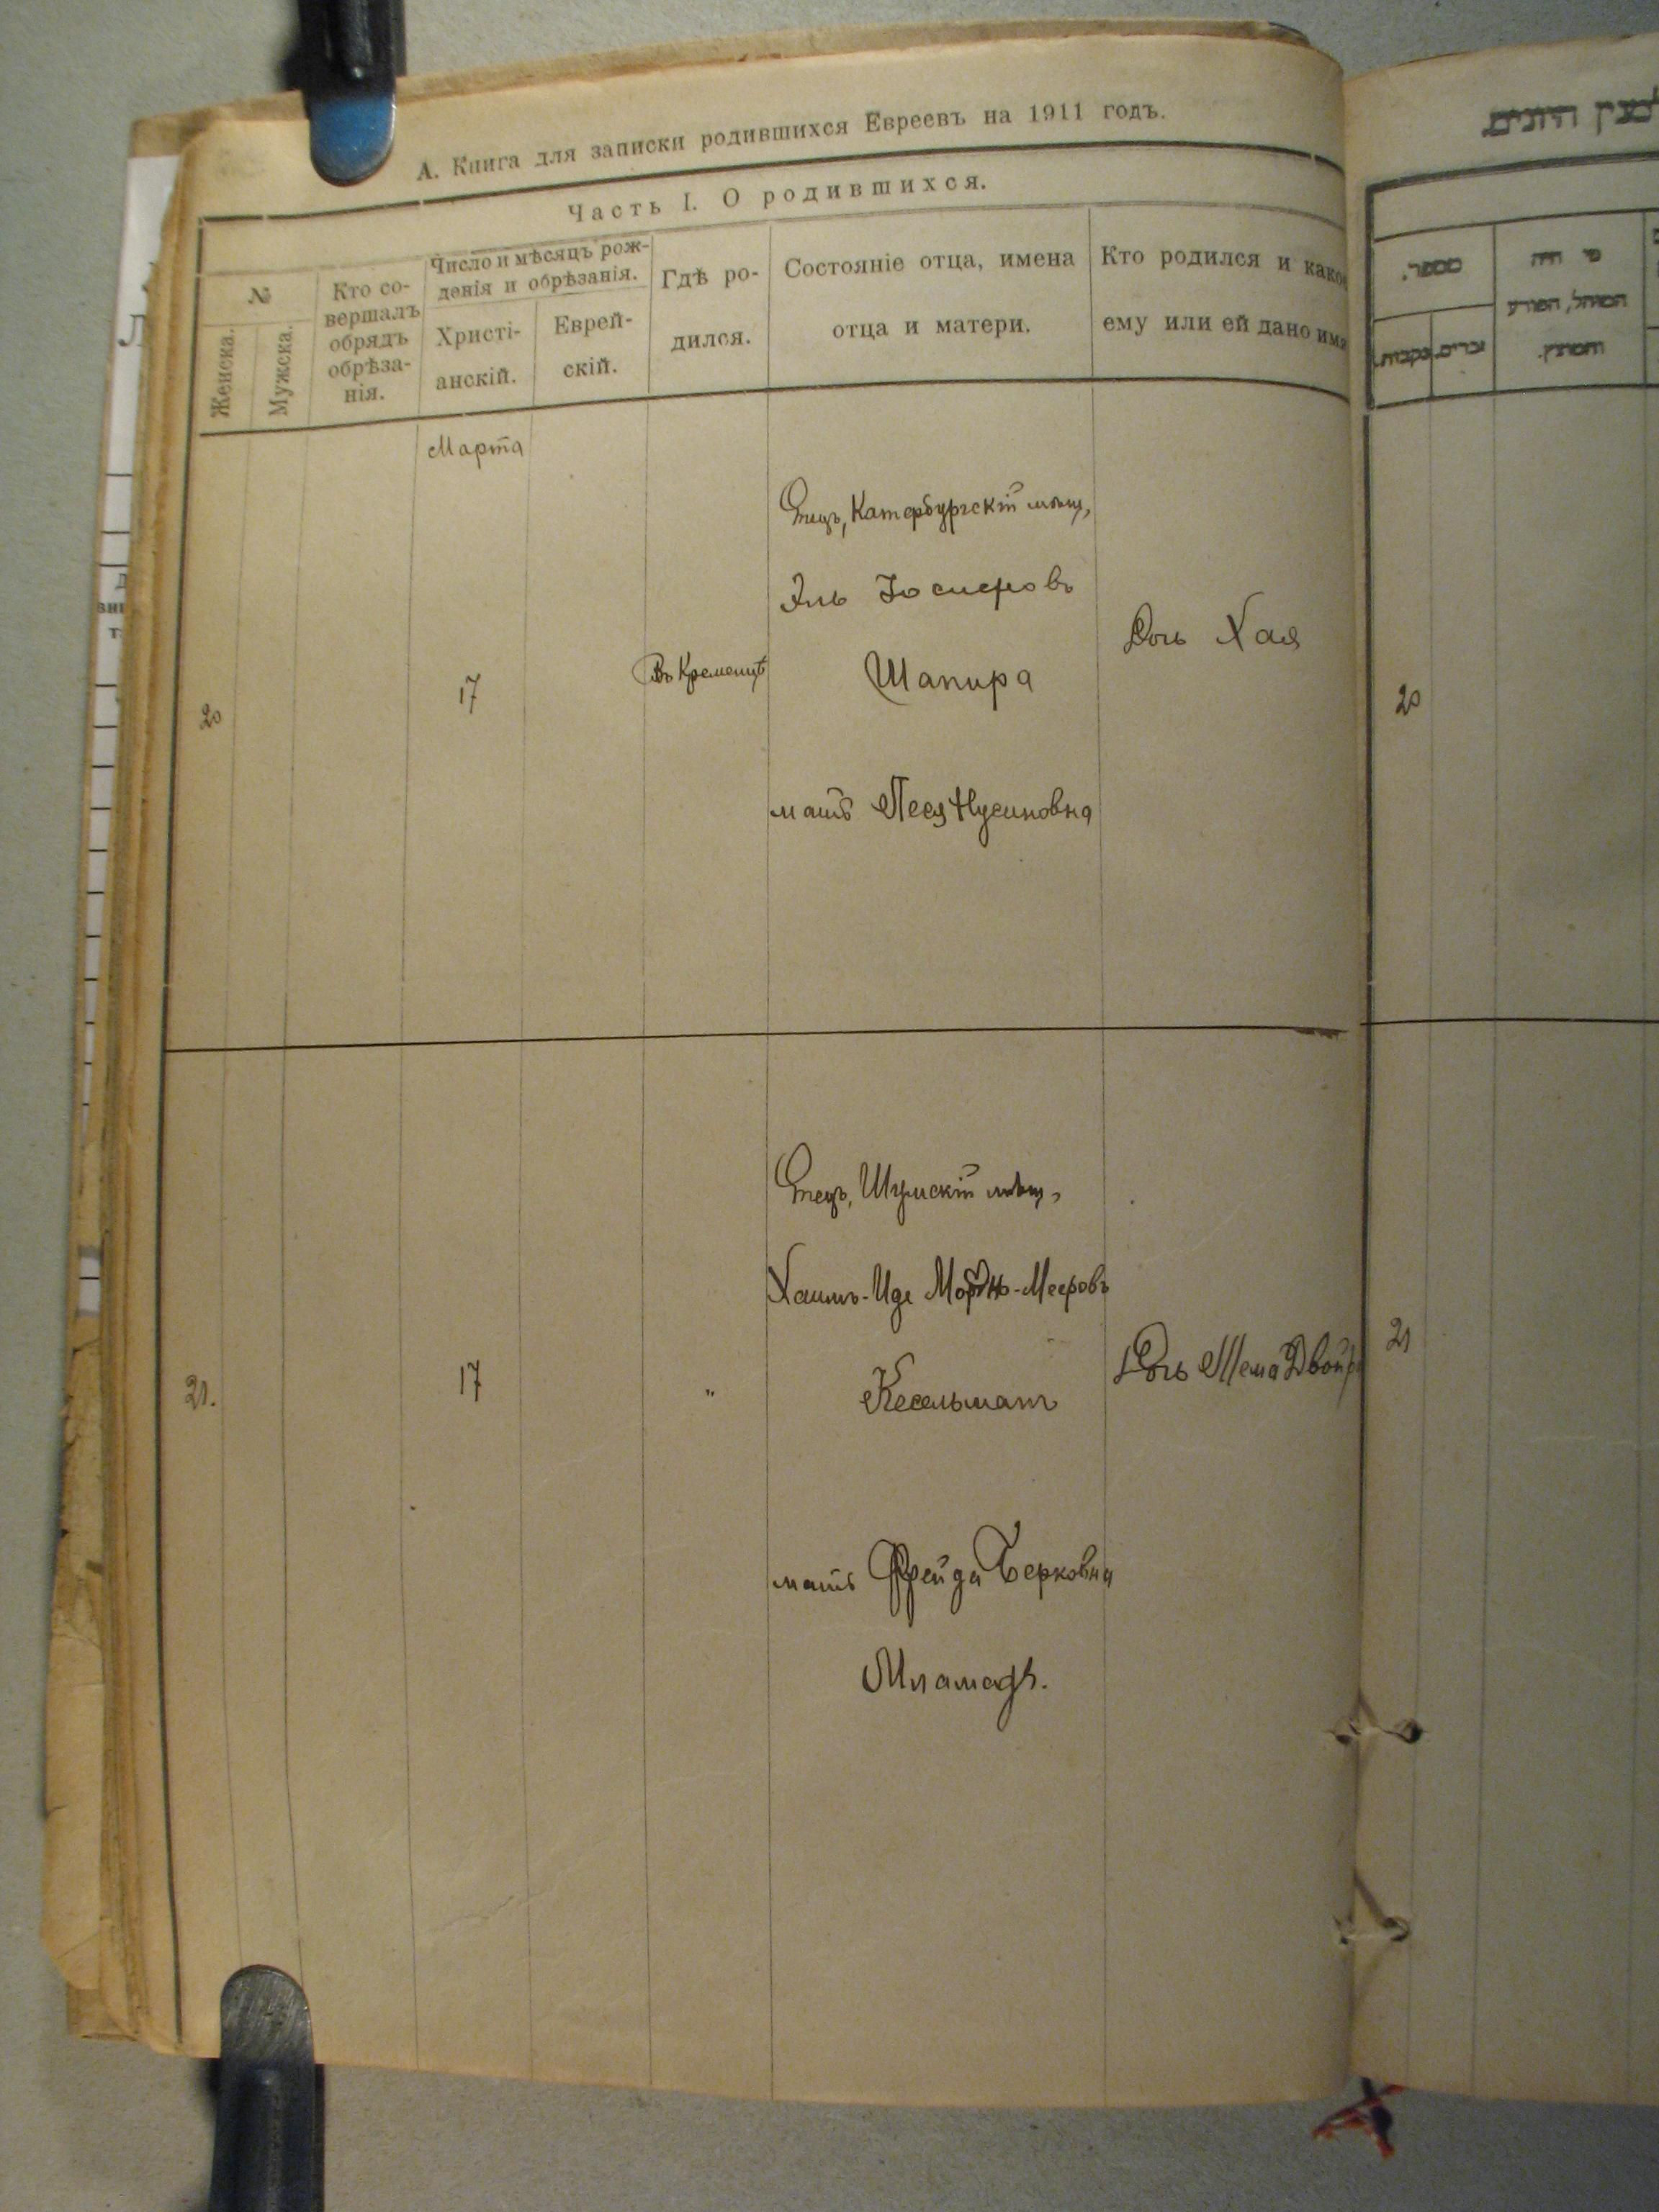 А. Книга для записки родившихся Евреевъ на 1911 годъ.
Часть I. О родившихся.
№
Женска.
Мужска.
Кто со-
вершалъ
обрядъ
обрѣза-
нія.
Число и мѣсяцъ рож-
денія и обрѣзанія.
Христі-
анскій.
Еврей-
скій.
Гдѣ ро-
дился.
Состояніе отца, имена
отца и матери.
Кто родился и какое
ему или ей дано имя
Марта
20
17
Въ Кременцѣ
Отецъ, Катербургскій мѣщ,
Эль Іосифовъ
Шапира
мать Песя Нусиновна
Дочь Хая
21.
17
"
Отецъ, Шумскій мѣщ,
Хаимъ-Иде Мееровъ
Кесельманъ
мать Фрейда Берковна
Мламедъ.
Дочь
היונים
מספר.
נקבות.
זכרים.
מי היה
המוהל, הפורע
והמוצץ.
20
21